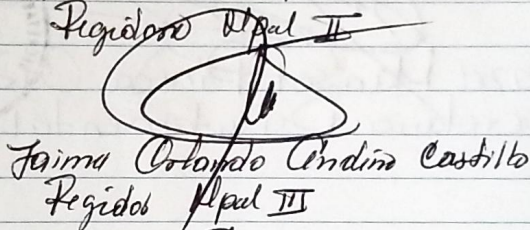 Regidora Mpal II
Jaime Orlando Andino Castillo
Regidor Mpal III